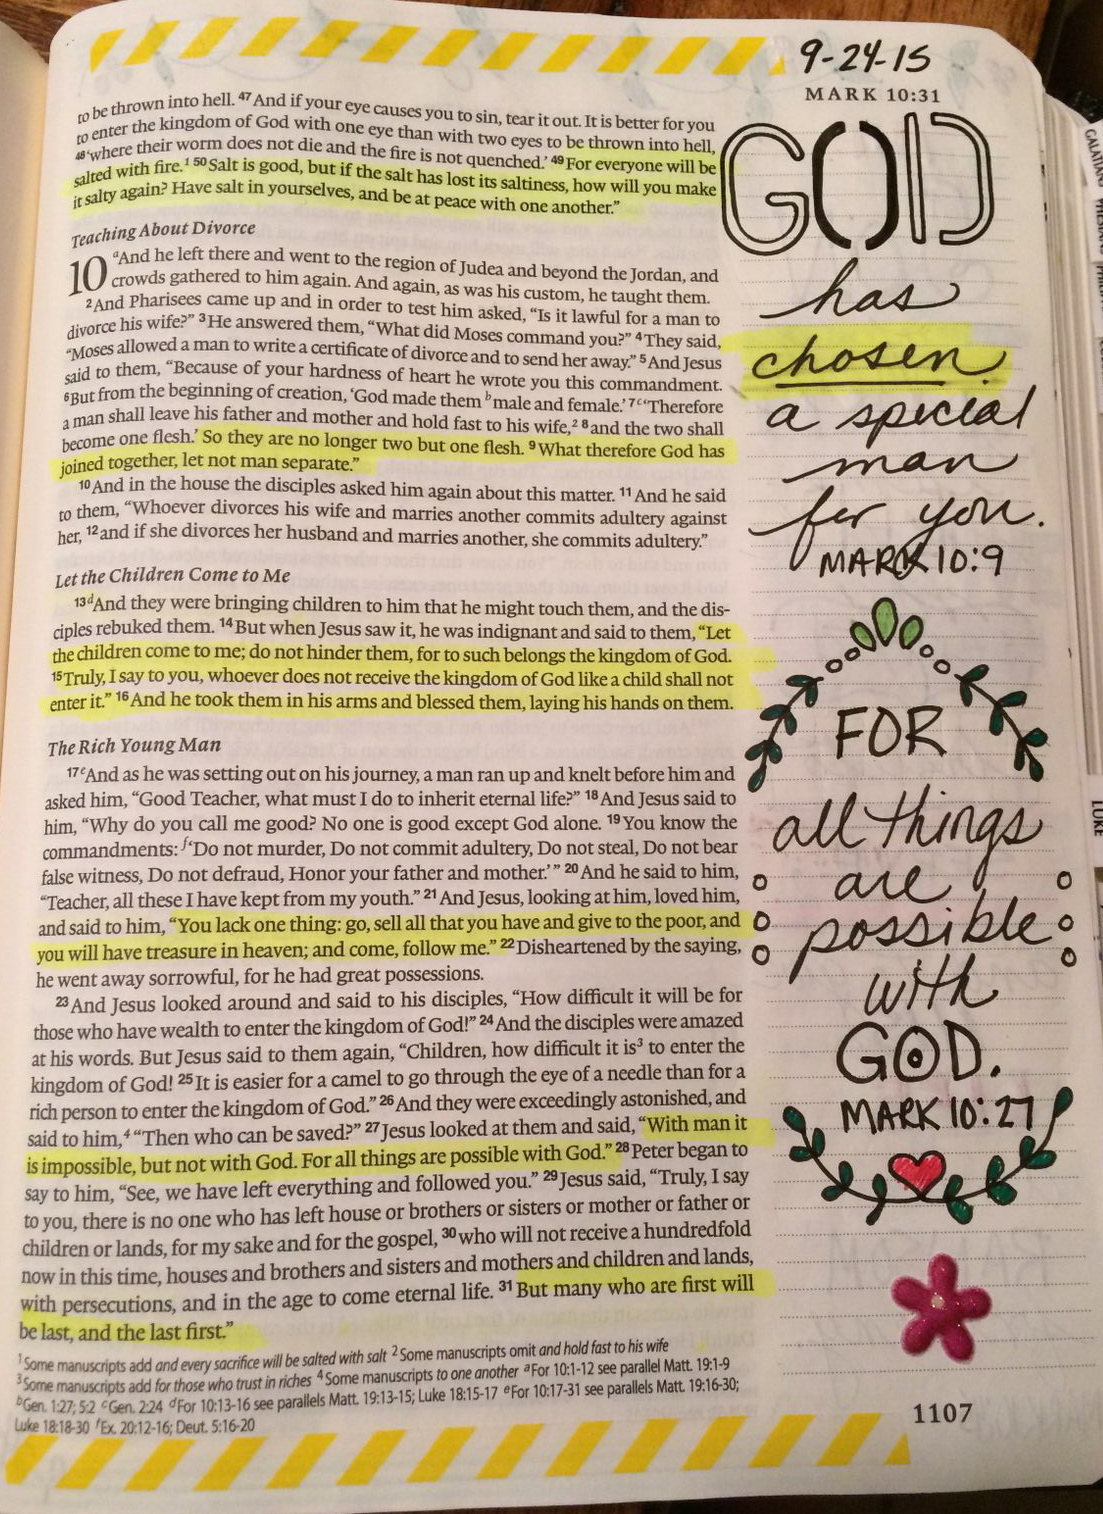 9-24-15
MARK 10:31
to be thrown into hell. 47 And if your eye causes you to sin, tear it out. It is better for you
to enter the kingdom of God with one eye than with two eyes to be thrown into hell,
48 ‘where their worm does not die and the fire is not quenched.’ 49 For everyone will be
salted with fire.1 50 Salt is good, but if the salt has lost its saltiness, how will you make
it salty again? Have salt in yourselves, and be at peace with one another.”
Teaching About Divorce
10 a And he left there and went to the region of Judea and beyond the Jordan, and
crowds gathered to him again. And again, as was his custom, he taught them.
2 And Pharisees came up and in order to test him asked, “Is it lawful for a man to
divorce his wife?” 3 He answered them, “What did Moses command you?” 4 They said,
“Moses allowed a man to write a certificate of divorce and to send her away.” 5 And Jesus
said to them, “Because of your hardness of heart he wrote you this commandment.
6 But from the beginning of creation, ‘God made them b male and female.’ 7 c ‘Therefore
a man shall leave his father and mother and hold fast to his wife,2 8 and the two shall
become one flesh.’ So they are no longer two but one flesh. 9 What therefore God has
joined together, let not man separate.”
10 And in the house the disciples asked him again about this matter. 11 And he said
to them, “Whoever divorces his wife and marries another commits adultery against
her, 12 and if she divorces her husband and marries another, she commits adultery.”
Let the Children Come to Me
13 d And they were bringing children to him that he might touch them, and the dis-
ciples rebuked them. 14 But when Jesus saw it, he was indignant and said to them, “Let
the children come to me; do not hinder them, for to such belongs the kingdom of God.
15 Truly, I say to you, whoever does not receive the kingdom of God like a child shall not
enter it.” 16 And he took them in his arms and blessed them, laying his hands on them.
The Rich Young Man
17 e And as he was setting out on his journey, a man ran up and knelt before him and
asked him, “Good Teacher, what must I do to inherit eternal life?” 18 And Jesus said to
him, “Why do you call me good? No one is good except God alone. 19 You know the
commandments: f ‘Do not murder, Do not commit adultery, Do not steal, Do not bear
false witness, Do not defraud, Honor your father and mother.’” 20 And he said to him,
“Teacher, all these I have kept from my youth.” 21 And Jesus, looking at him, loved him,
and said to him, “You lack one thing: go, sell all that you have and give to the poor, and
you will have treasure in heaven; and come, follow me.” 22 Disheartened by the saying,
he went away sorrowful, for he had great possessions.
23 And Jesus looked around and said to his disciples, “How difficult it will be for
those who have wealth to enter the kingdom of God!” 24 And the disciples were amazed
at his words. But Jesus said to them again, “Children, how difficult it is3 to enter the
kingdom of God! 25 It is easier for a camel to go through the eye of a needle than for a
rich person to enter the kingdom of God.” 26 And they were exceedingly astonished, and
said to him,4 “Then who can be saved?” 27 Jesus looked at them and said, “With man it
is impossible, but not with God. For all things are possible with God.” 28 Peter began to
say to him, “See, we have left everything and followed you.” 29 Jesus said, “Truly, I say
to you, there is no one who has left house or brothers or sisters or mother or father or
children or lands, for my sake and for the gospel, 30 who will not receive a hundredfold
now in this time, houses and brothers and sisters and mothers and children and lands,
with persecutions, and in the age to come eternal life. 31 But many who are first will
be last, and the last first.”
1 Some manuscripts add and every sacrifice will be salted with salt 2 Some manuscripts omit and hold fast to his wife
3 Some manuscripts add for those who trust in riches 4 Some manuscripts to one another a For 10:1-12 see parallel Matt. 19:1-9
b Gen. 1:27; 5:2 c Gen. 2:24 d For 10:13-16 see parallels Matt. 19:13-15; Luke 18:15-17 e For 10:17-31 see parallels Matt. 19:16-30;
Luke 18:18-30 f Ex. 20:12-16; Deut. 5:16-20
GOD
has
chosen
a special
man
for you.
MARK 10:9
FOR
all things
are
possible
with
GOD.
MARK 10:27
1107
GALATIANS
LUKE